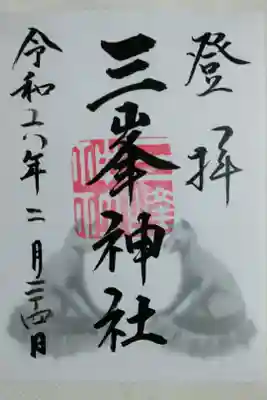 登拝
三峯神社
令和六年二月二十四日